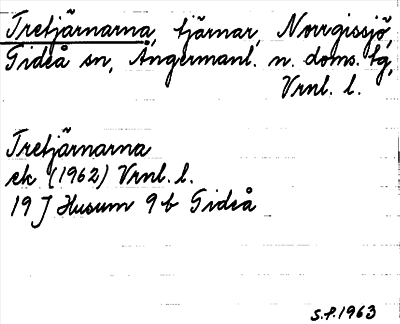 Tretjärnarna, tjärnar, Norrgissjö,
Gideå sn, Ångermanl. n. doms. tg,
Vrnl. l.
Tretjärnarna
ek (1962) Vrnl. l.
19 J Husum 9 b Gideå
S.P. 1963